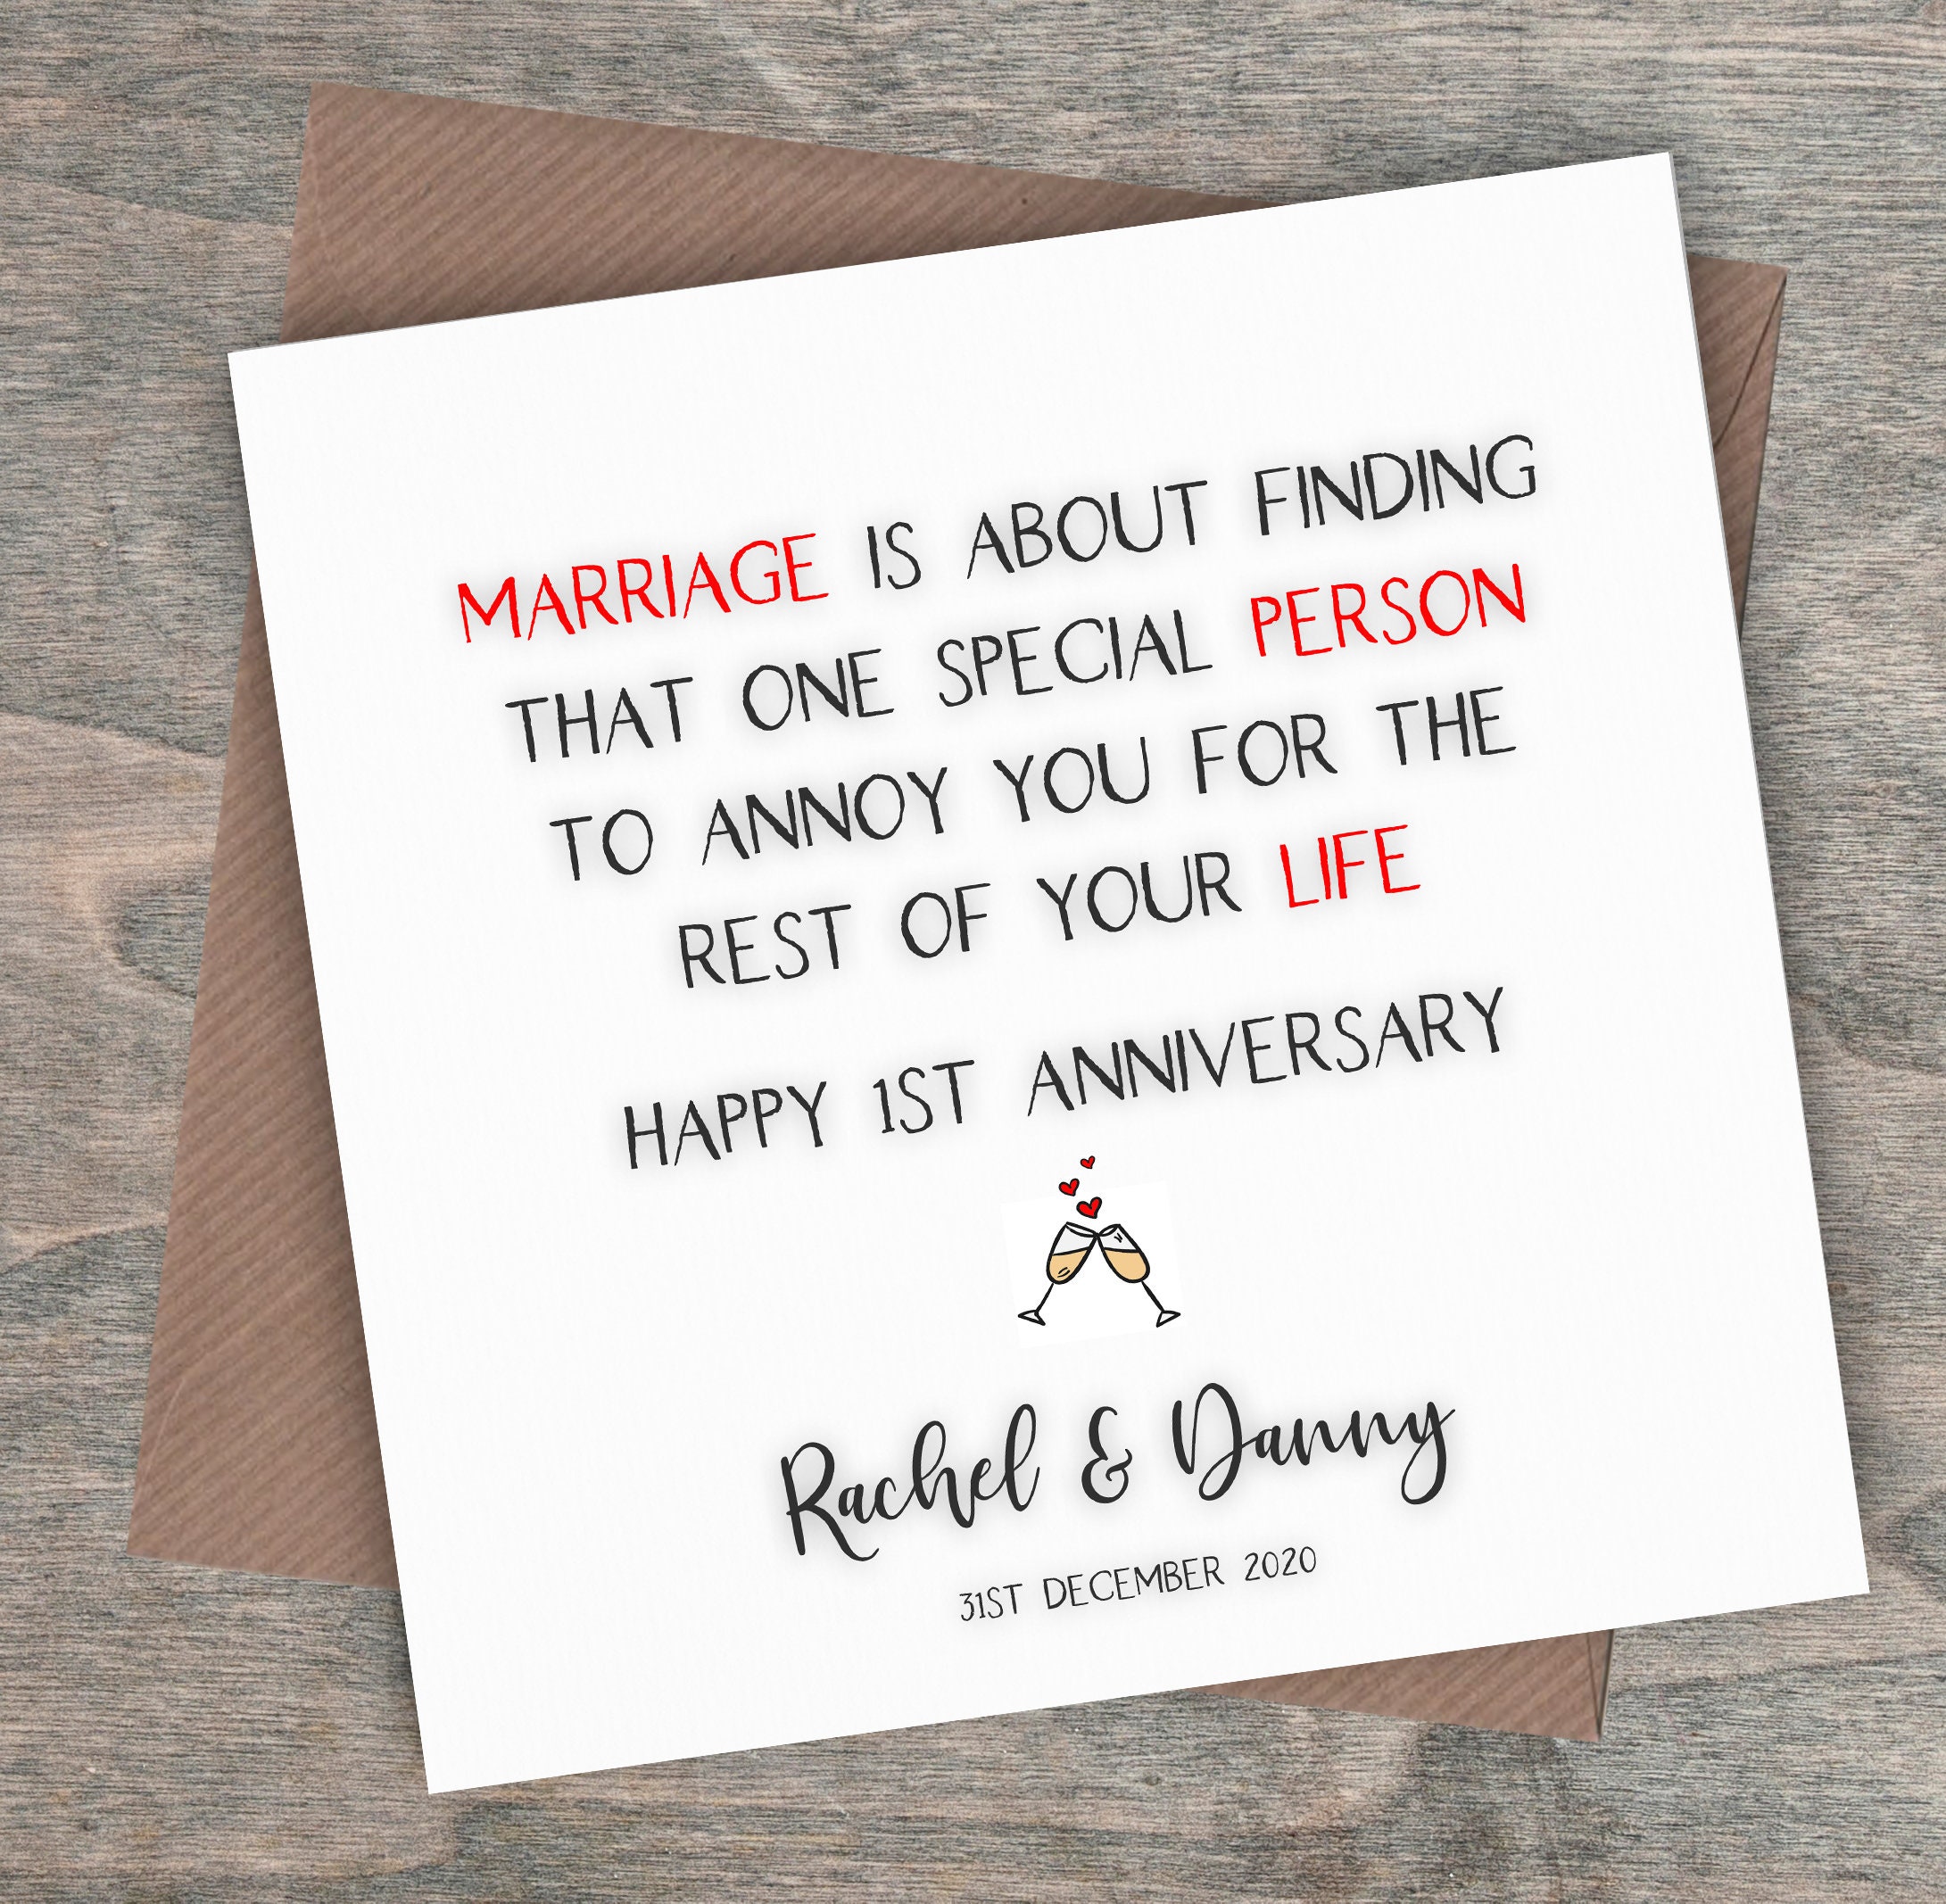 MARRIAGE IS ABOUT FINDING
THAT ONE SPECIAL PERSON
TO ANNOY YOU FOR THE
REST OF YOUR LIFE
HAPPY 1ST ANNIVERSARY
Rachel & Danny
31ST DECEMBER 2020